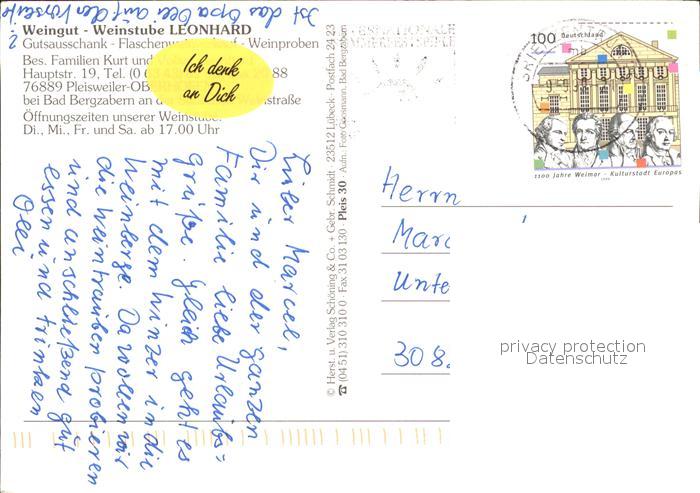 Ist das Opa Oeli auf der Vorseite
?
Weingut - Weinstube LEONHARD
Gutsausschank - Weinproben
Bes. Familien Kurt und
Hauptstr. 19, Tel. (0 88
76889 Pleisweiler-
bei Bad Bergzabern an
Öffnungszeiten unserer Weinstube:
Di., Mi., Fr. und Sa. ab 17.00 Uhr
Ich denk
an Dich
Lieber Marcel,
Dir und der ganzen
Familie liebe Urlaubs=
grüße. Gleich geht es
mit dem Winzer in die
Weinberge. Da wollen wir
die Weintrauben probieren
und anschließend gut
essen und trinken
© Herst. u. Verlag Schöning & Co. + Gebr. Schmidt · 23512 Lübeck · Postfach 24 23
☎ (04 51) 310 310 0 · Fax 31 03 130 · Pleis 30 · Aufn. Foto Goosmann, Bad Bergzabern
100 Deutschland
1100 Jahre Weimar - Kulturstadt Europas
1999
Herrn
Marc
Unte
308
privacy protection
Datenschutz